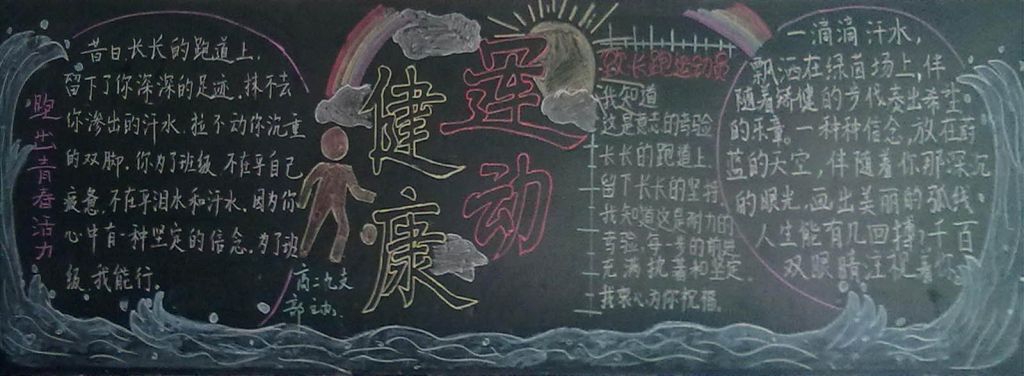 跑出青春活力
昔日长长的跑道上,
留下了你深深的足迹.抹不去
你渗出的汗水.拉不动你沉重
的双脚.你为了班级不在乎自己
疲惫.不在乎泪水和汗水.因为你
心中有一种坚定的信念.为了班
级.我能行.
高二九支
部主办.
健康
运动
致长跑运动员
我知道
这是意志的考验
长长的跑道上
留下长长的坚持
我知道这是耐力的
考验.每一素的
充满执着和坚定
我衷心为你祝福.
一滴滴汗水,
飘洒在绿茵场上,伴
随着矫健的步伐奏出希望
的乐章.一种种信念,放在蔚
蓝的天空,伴随着你那深沉
的眼光.画出美丽的弧线.
人生能有几回搏,千百
双眼睛注视着你